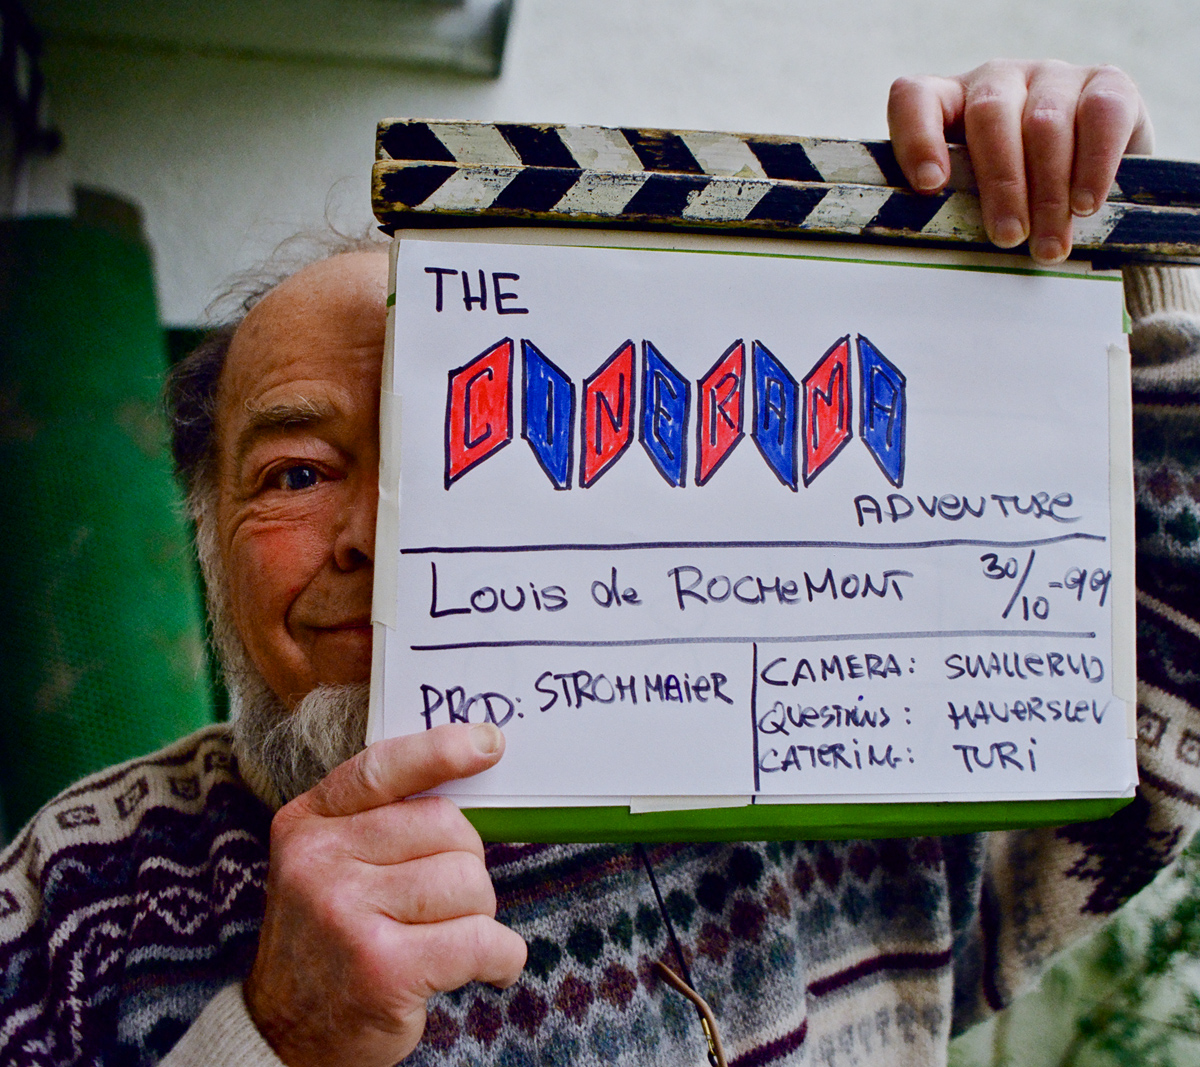 THE
CINERAMA
ADVENTURE
Louis de ROCHEMONT 30/10-99
PROD: STROHMAIER
CAMERA: SVALLERUD
QUESTIONS: HAVERSLEV
CATERING: TURI